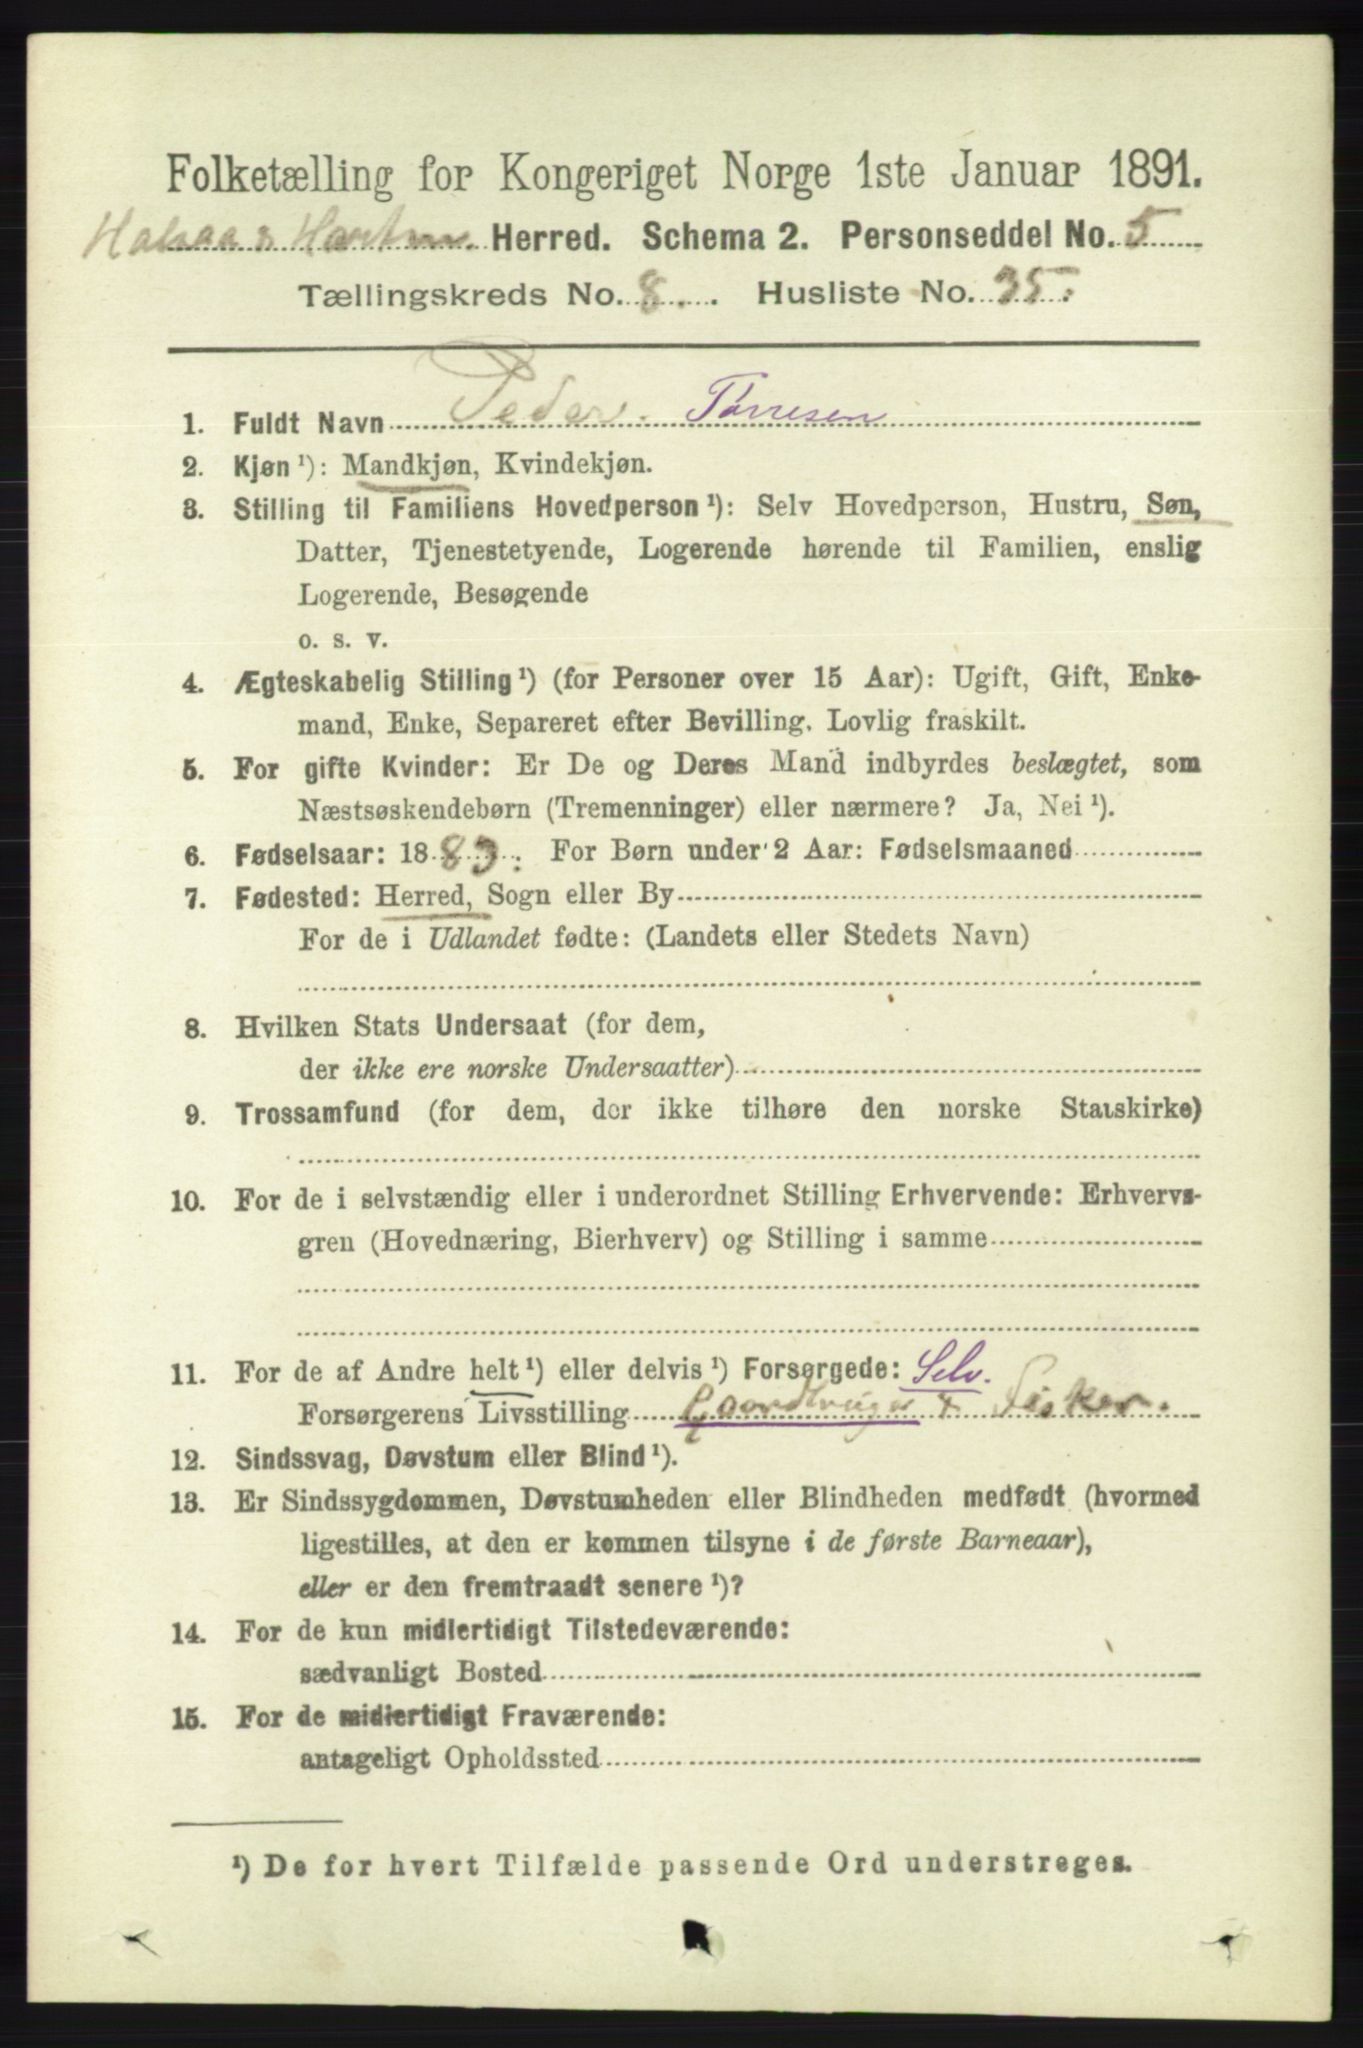 Folketælling for Kongeriget Norge 1ste Januar 1891.
Halsaa & Herred. Schema 2. Personseddel No. 5
Tællingskreds No. 8. Husliste No. 35.
1. Fuldt Navn Peder Tørresen
2. Kjøn ¹): Mandkjøn, Kvindekjøn.
3. Stilling til Familiens Hovedperson ¹): Selv Hovedperson, Hustru, Søn,
Datter, Tjenestetyende, Logerende hørende til Familien, enslig
Logerende, Besøgende
o. s. v.
4. Ægteskabelig Stilling ¹) (for Personer over 15 Aar): Ugift, Gift, Enke-
mand, Enke, Separeret efter Bevilling. Lovlig fraskilt.
5. For gifte Kvinder: Er De og Deres Mand indbyrdes beslægtet, som
Næstsøskendebørn (Tremenninger) eller nærmere? Ja, Nei ¹).
6. Fødselsaar: 1883. For Børn under 2 Aar: Fødselsmaaned
7. Fødested: Herred, Sogn eller By
For de i Udlandet fødte: (Landets eller Stedets Navn)
8. Hvilken Stats Undersaat (for dem,
der ikke ere norske Undersaatter)
9. Trossamfund (for dem, der ikke tilhøre den norske Statskirke)
10. For de i selvstændig eller i underordnet Stilling Erhvervende: Erhvervs-
gren (Hovednæring, Bierhverv) og Stilling i samme
11. For de af Andre helt ¹) eller delvis ¹) Forsørgede: Selv.
Forsørgerens Livsstilling Gaardbruger & Fisker.
12. Sindssvag, Døvstum eller Blind ¹).
13. Er Sindssygdommen, Døvstumheden eller Blindheden medfødt (hvormed
ligestilles, at den er kommen tilsyne i de første Barneaar),
eller er den fremtraadt senere ¹)?
14. For de kun midlertidigt Tilstedeværende:
sædvanligt Bosted
15. For de midlertidigt Fraværende:
antageligt Opholdssted
¹) De for hvert Tilfælde passende Ord understreges.